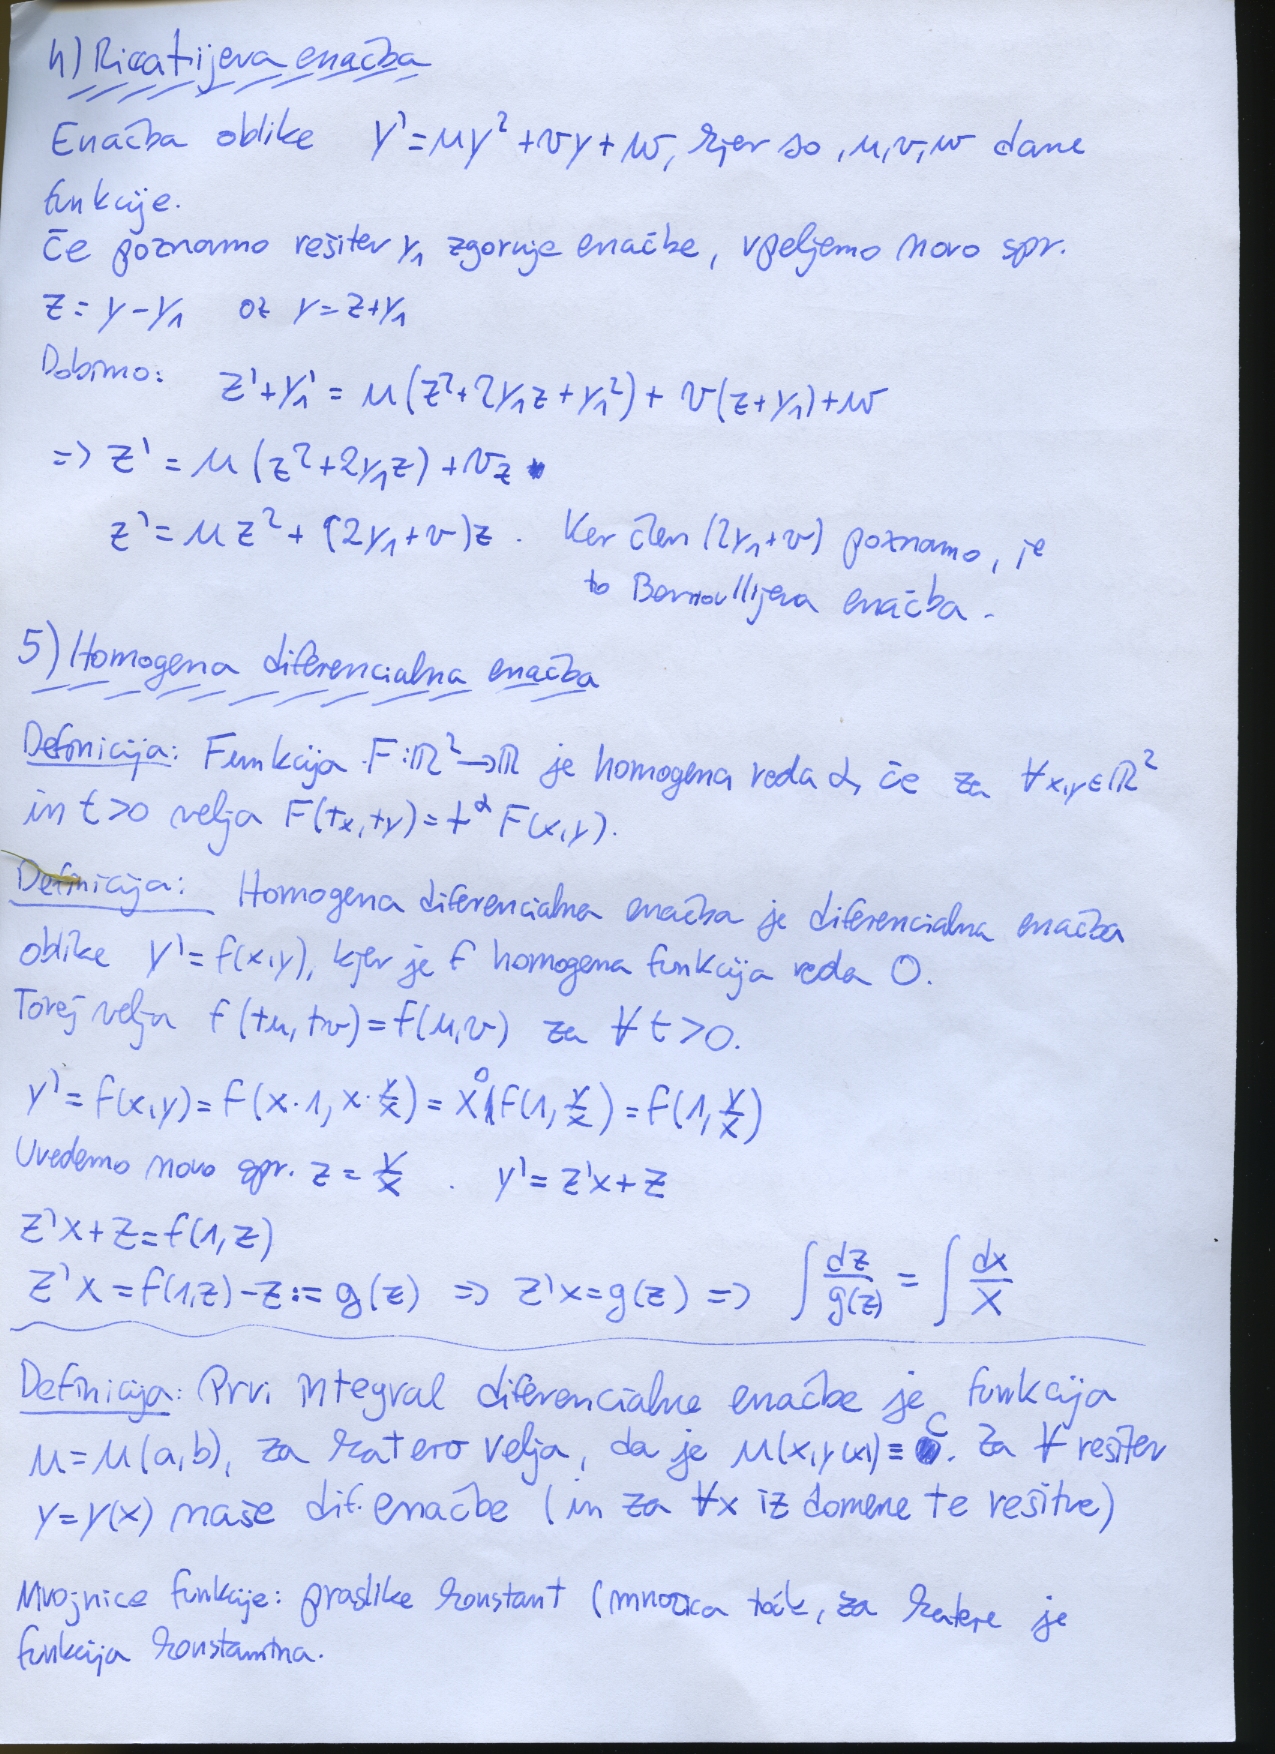 4) Riccatijeva enačba
Enačba oblike y' = uy² + vy + w, kjer so , u, v, w dane
funkcije.
Če poznamo rešitev y₁ zgornje enačbe, vpeljemo novo spr.
z = y - y₁ oz y = z + y₁
Dobimo: z' + y₁' = u(z² + 2y₁z + y₁²) + v(z + y₁) + w
=> z' = u(z² + 2y₁z) + vz
z' = uz² + (2y₁ + v)z . Ker člen (2y₁ + v) poznamo, je
to Bernoullijeva enačba.
5) Homogena diferencialna enačba
Definicija: Funkcija F: ℝ² → ℝ je homogena reda α, če za ∀x,y ∈ ℝ²
in t > 0 velja F(tx, ty) = t^α F(x, y).
Definicija: Homogena diferencialna enačba je diferencialna enačba
oblike y' = f(x, y), kjer je f homogena funkcija reda 0.
Torej velja f(tu, tv) = f(u, v) za ∀ t > 0.
y' = f(x, y) = f(x·1, x·y/x) = x⁰ f(1, y/x) = f(1, y/x)
Uvedemo novo spr. z = y/x . y' = z'x + z
z'x + z = f(1, z)
z'x = f(1, z) - z := g(z) => z'x = g(z) => ∫ dz/g(z) = ∫ dx/x
Definicija: Prvi integral diferencialne enačbe je funkcija
u = u(a, b), za katero velja, da je u(x, y(x)) ≡ C. Za ∀ rešitev
y = y(x) naše dif. enačbe (in za ∀x iz domene te rešitve)
Nivojnice funkcije: praslike konstant (množica točk, za katere je
funkcija konstantna.